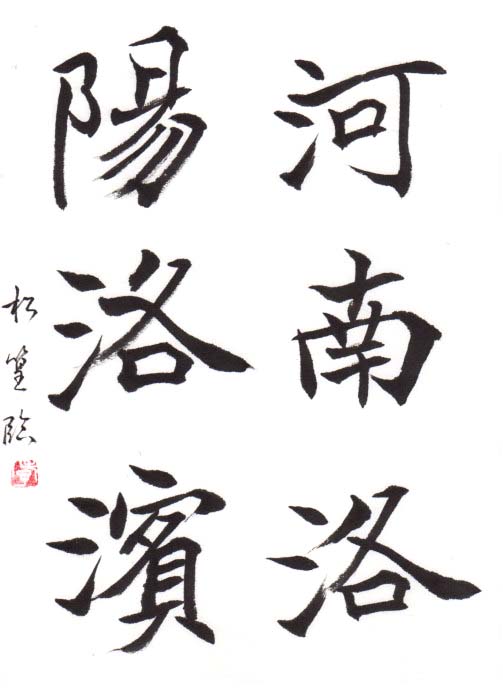 河南洛
陽洛濱
松篁臨